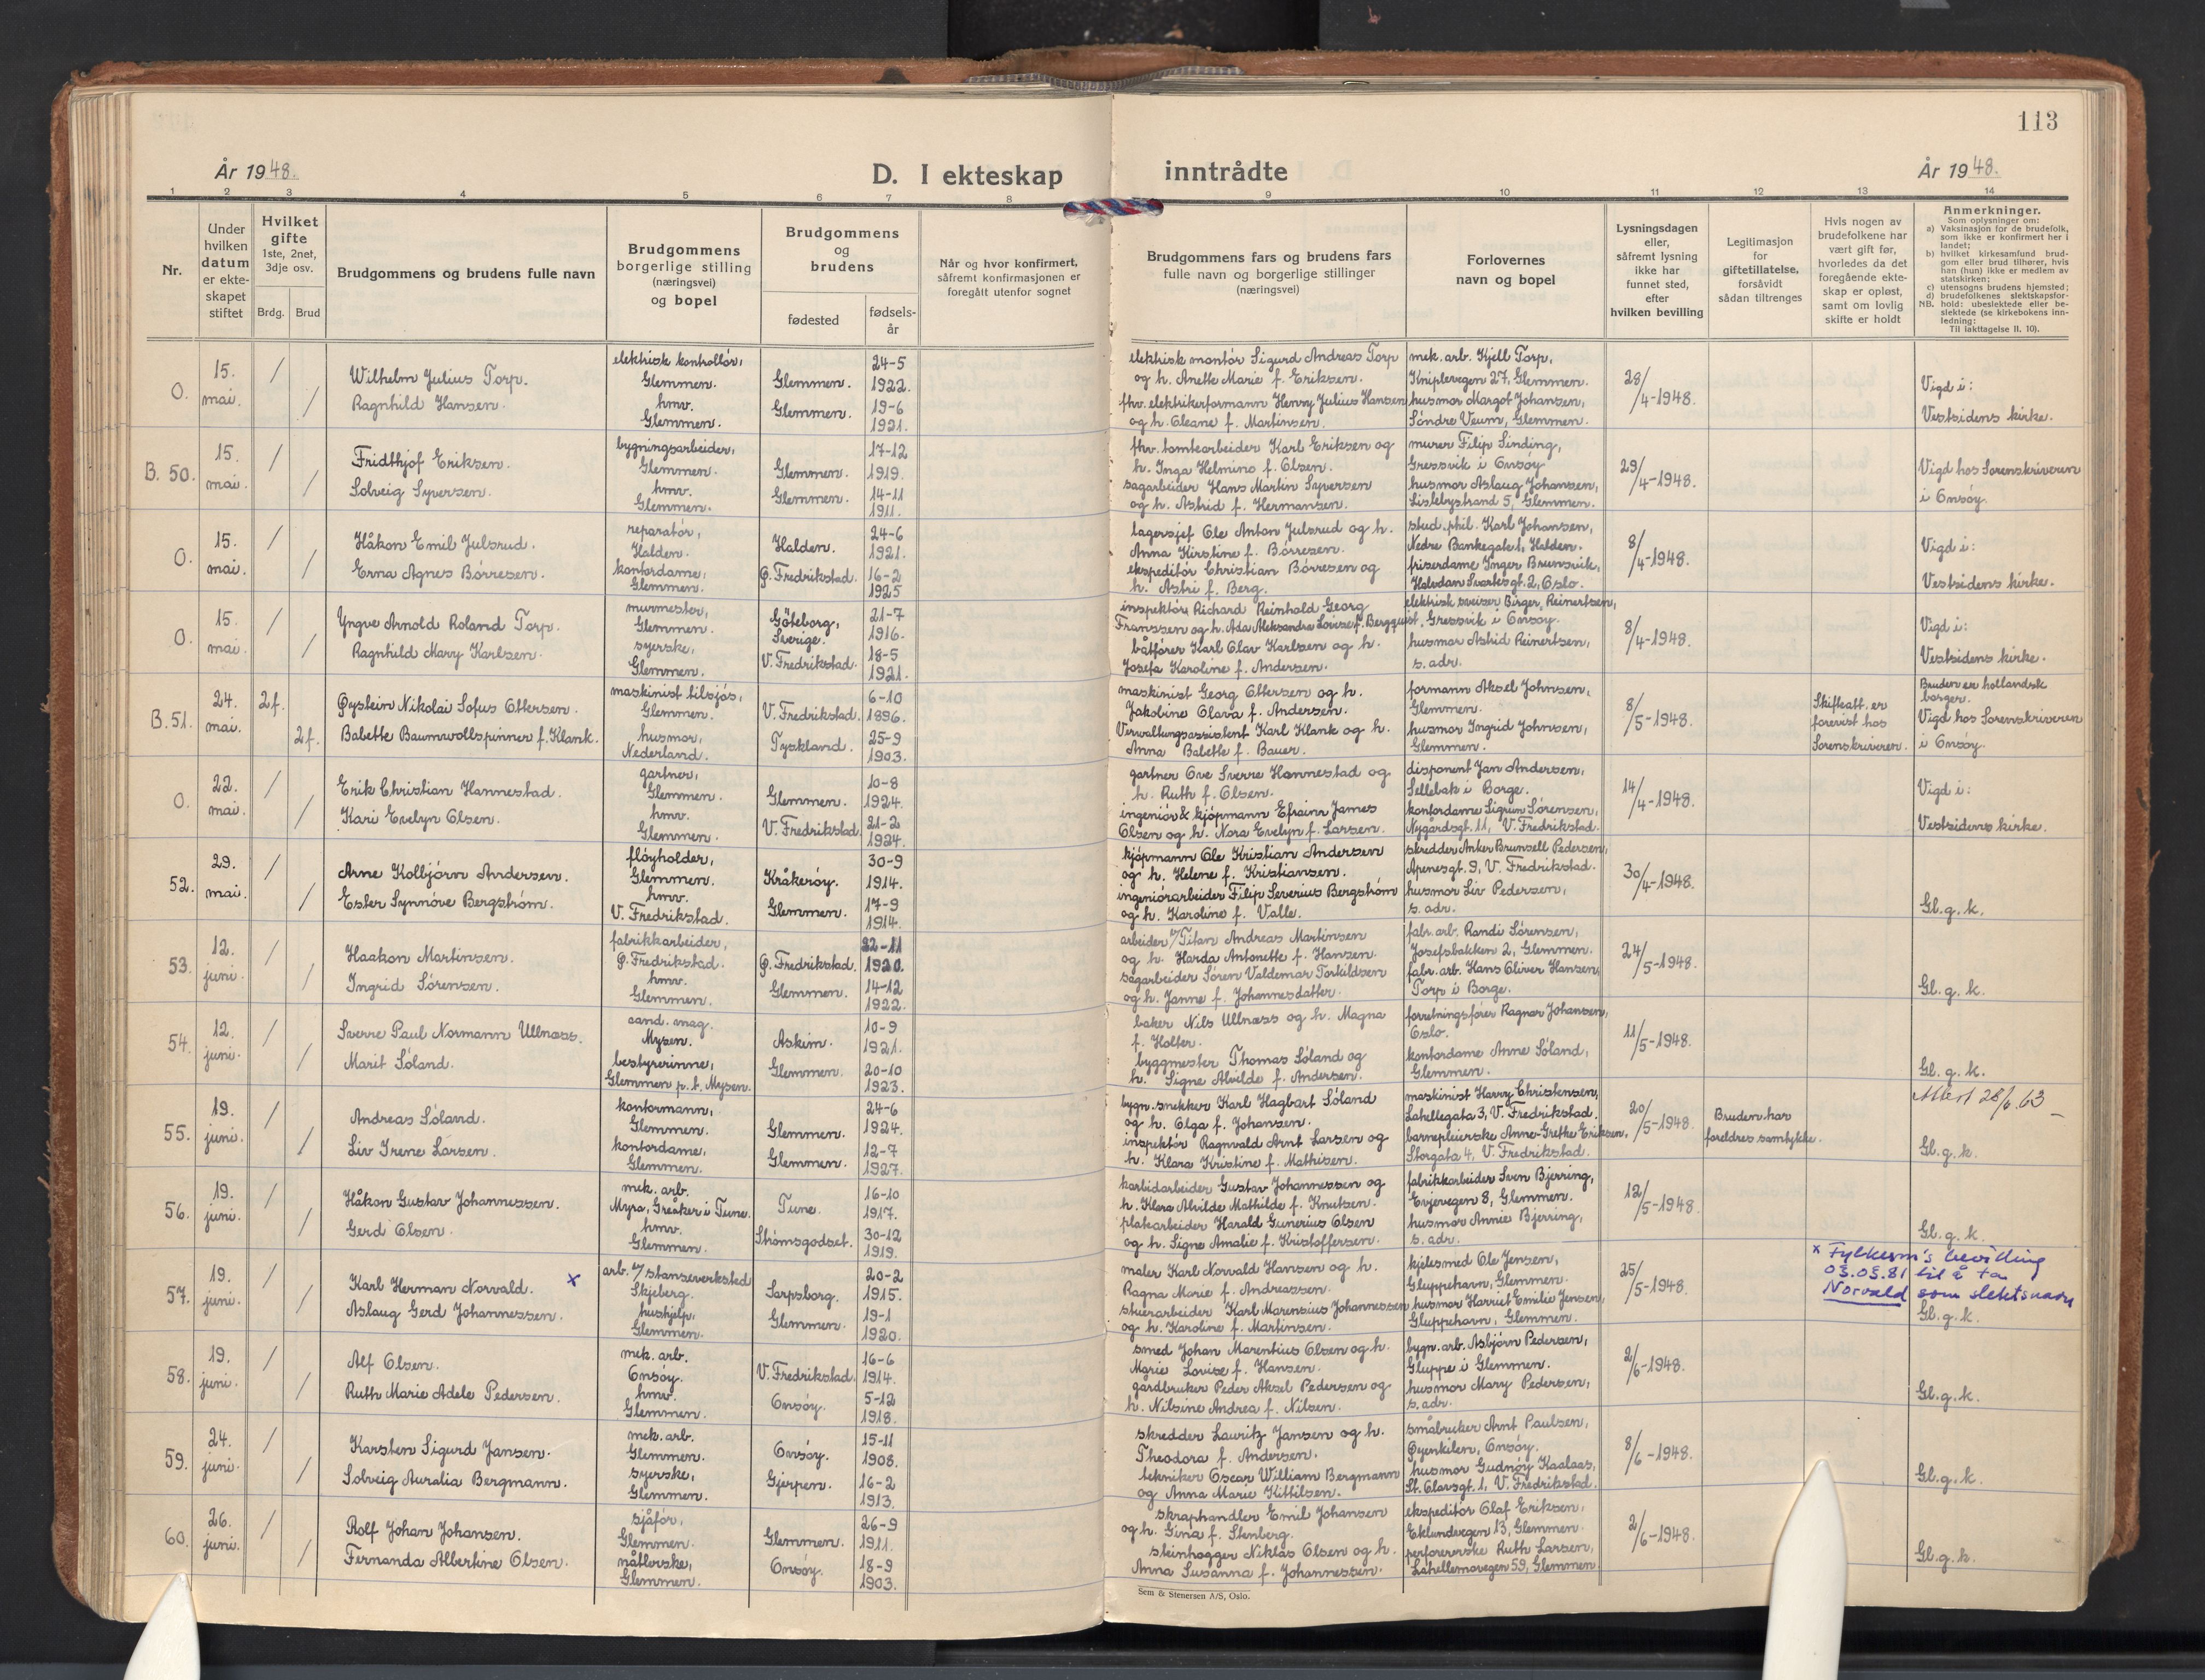 113
År 1948.
D. I ekteskap inntrådte
År 1948.
1 2 3 4 5 6 7 8 9 10 11 12 13 14
Nr.
Under
hvilken
datum
er ekte-
skapet
stiftet
Hvilket
gifte
1ste, 2net,
3dje osv.
Brdg. Brud
Brudgommens og brudens fulle navn
Brudgommens
borgerlige stilling
(næringsvei)
og bopel
Brudgommens
og
brudens
fødested
fødsels-
år
Når og hvor konfirmert,
såfremt konfirmasjonen er
foregått utenfor sognet
Brudgommens fars og brudens fars
fulle navn og borgerlige stillinger
(næringsvei)
Forlovernes
navn og bopel
Lysningsdagen
eller,
såfremt lysning
ikke har
funnet sted,
efter
hvilken bevilling
Legitimasjon
for
giftetillatelse,
forsåvidt
sådan tiltrenges
Hvis nogen av
brudefolkene har
vært gift før,
hvorledes da det
foregående ekte-
skap er opløst,
samt om lovlig
skifte er holdt
Anmerkninger.
Som oplysninger om:
a) Vaksinasjon for de brudefolk,
som ikke er konfirmert her i
landet;
b) hvilket kirkesamfund brud-
gom eller brud tilhører, hvis
han (hun) ikke er medlem av
statskirken;
c) utensogns brudens hjemsted;
d) brudefolkenes slektskapsfor-
NB. hold: ubeslektede eller be-
slektede (se kirkebokens inn-
ledning:
Til iakttagelse II. 10).
O. 15. mai. / /
Wilhelm Julius Torp.
Ragnhild Hansen.
elektrisk kontrollør,
Glemmen.
hmv.
Glemmen.
Glemmen. 24-5 1922.
Glemmen. 19-6 1921.
elektrisk montör Sigurd Andreas Torp
og h. Anette Marie f. Eriksen.
fhv. elektrikerformann Henry Julius Hansen
og h. Oleane f. Martinsen.
mek. arb. Kjell Torp,
Kniplevegen 27, Glemmen.
husmor Margot Johansen,
Söndre Veum, Glemmen.
28/4-1948.
Vigd i:
Vestsidens kirke.
B. 50. 15. mai. / /
Fridthjof Eriksen.
Solveig Syversen.
bygningsarbeider,
Glemmen.
hmv.
Glemmen.
Glemmen. 17-12 1919.
Glemmen. 14-11 1911.
fhv. tomtearbeider Karl Eriksen og
h. Inga Helmine f. Olsen.
sagarbeider Hans Martin Syversen
og h. Astrid f. Hermansen.
murer Filip Sinding,
Gressvik i Onsöy
husmor Aslaug Johansen,
Lislebystrand 5, Glemmen.
29/4-1948.
Vigd hos Sorenskriveren
i Onsöy.
O. 15. mai. / /
Håkon Emil Julsrud.
Erna Agnes Börresen.
reparatör,
Halden.
kontordame,
Glemmen.
Halden. 24-6 1921.
Ø. Fredrikstad. 16-2 1925
lagersjef Ole Anton Julsrud og h.
Anna Kirstine f. Börresen.
ekspeditör Christian Börresen og
h. Astri f. Berg.
stud. phil. Karl Johansen,
Nedre Bankegate 1, Halden.
friserdame Inger Brunsvik,
Halvdan Svartesgt. 2, Oslo.
8/4-1948.
Vigd i:
Vestsidens kirke.
O. 15. mai. / /
Yngve Arnold Roland Torp.
Ragnhild Mary Karlsen.
murmester,
Glemmen.
syerske,
Glemmen.
Göteborg, Sverige. 21-7 1916.
V. Fredrikstad. 18-5 1921.
inspektör Richard Reinhold Georg
Franssen og h. Ada Aleksandra Lovise f. Bergquist.
båtförer Karl Olav Karlsen og h.
Josefa Karoline f. Andersen.
elektrisk sveiser Birger Reinertsen,
Gressvik i Onsöy.
husmor Astrid Reinertsen,
s. adr.
8/4-1948.
Vigd i:
Vestsidens kirke.
B. 51. 24. mai. 2f. 2f.
Øystein Nikolai Sofus Ottersen.
Babette Baumwollspinner f. Klank.
maskinist tilsjös,
Glemmen.
husmor,
Nederland.
V. Fredrikstad. 6-10 1896.
Tyskland. 25-9 1903.
maskinist Georg Ottersen og h.
Jakobine Olava f. Andersen.
Verwaltungsassistent Karl Klank og h.
Anna Babette f. Bauer.
formann Aksel Johnsen,
Glemmen.
husmor Ingrid Johnsen,
Glemmen.
8/5-1948.
Skifteatt. er
forevist hos
Sorenskriveren.
Bruden er hollandsk
borger.
Vigd hos Sorenskriveren
i Onsöy.
O. 22. mai. / /
Erik Christian Hannestad.
Kari Evelyn Olsen.
gartner,
Glemmen.
hmv.
Glemmen.
Glemmen. 10-8 1924.
V. Fredrikstad 21-2 1924.
gartner Ove Sverre Hannestad og
h. Ruth f. Olsen.
ingeniör & kjöpmann Efrainn James
Olsen og h. Nora Evelyn f. Larsen.
disponent Jan Andersen,
Sellebak i Borge.
kontordame Sigrun Sörensen,
Nygårdsgt. 11, V. Fredrikstad.
14/4-1948.
Vigd i:
Vestsidens kirke.
52. 29. mai. / /
Arne Kolbjörn Andersen.
Ester Synnöve Bergström.
flöyholder,
Glemmen.
hmv.
V. Fredrikstad.
Kråkeröy. 30-9 1914.
Glemmen. 17-9 1914.
kjöpmann Ole Kristian Andersen
og h. Helene f. Kristiansen.
ingeniörarbeider Filip Severius Bergström
og h. Karoline f. Valle.
skredder Anker Brunsell Pedersen,
Apenesgt. 9, V. Fredrikstad.
husmor Liv Pedersen,
s. adr.
30/4-1948.
Gl. g. k.
53. 12. juni. / /
Haakon Martinsen.
Ingrid Sörensen.
fabrikkarbeider,
Ø. Fredrikstad.
hmv.
Glemmen.
Ø. Fredrikstad. 22-11 1920.
Glemmen. 14-12 1922.
arbeider v/Titan Andreas Martinsen
og h. Harda Antonette f. Hansen.
sagarbeider Sören Valdemar Torkildsen
og h. Janne f. Johannesdatter.
fabr. arb. Randi Sörensen,
Josefsbakken 2, Glemmen.
fabr. arb. Hans Oliver Hansen,
Torp i Borge.
24/5-1948.
Gl. g. k.
54. 12. juni. / /
Sverre Paul Normann Ullnæss.
Marit Söland.
cand. mag.
Mysen.
bestyrerinne,
Glemmen p. t. Mysen.
Askim. 10-9 1921.
Glemmen. 20-10 1923.
baker Nils Ullnæss og h. Magna
f. Holter.
byggmester Thomas Söland og
h. Signe Alvilde f. Andersen.
forretningsförer Ragnar Johansen,
Oslo.
kontordame Anne Söland,
Glemmen.
11/5-1948.
Gl. g. k.
55. 19. juni. / /
Andreas Söland.
Liv Irene Larsen.
kontormann,
Glemmen.
kontordame,
Glemmen.
Glemmen. 24-6 1924.
Glemmen. 12-7 1927.
bygn. snekker Karl Hagbart Söland
og h. Olga f. Johansen.
inspektör Ragnvald Arnt Larsen og
h. Klara Kristine f. Mathisen.
maskinist Harry Christensen,
Lahellegata 3, V. Fredrikstad.
barnepleierske Anne-Grethe Eriksen,
Storgata 4, V. Fredrikstad.
20/5-1948.
Bruden har
foreldres samtykke.
Attest 28/6. 63
Gl. g. k.
56. 19. juni. / /
Håkon Gustav Johannessen.
Gerd Olsen.
mek. arb.
Myra, Greåker i Tune.
hmv.
Glemmen.
Tune. 16-10 1917.
Strömsgodset. 30-12 1919.
karbidarbeider Gustav Johannessen og
h. Klara Alvilde Mathilde f. Knutsen.
platearbeider Harald Gunerius Olsen
og h. Signe Amalie f. Kristoffersen.
fabrikkarbeider Sven Bjerring,
Evjevegen 8, Glemmen.
husmor Annie Bjerring,
s. adr.
12/5-1948.
Gl. g. k.
57. 19. juni. / /
Karl Herman Norvald. x
Aslaug Gerd Johannessen.
arb. v/ stanseverksted
Skjeberg.
hushjelp.
Glemmen.
Sarpsborg. 20-2 1915.
Glemmen. 19-1 1920.
maler Karl Norvald Hansen og h.
Ragna Marie f. Andreassen.
stuerarbeider Karl Marensius Johannessen
og h. Karoline f. Martinsen.
kjelesmed Ole Jensen,
Gluppehavn, Glemmen.
husmor Harriet Emilie Jensen,
Gluppehavn, Glemmen.
25/5-1948.
x Fylkesm's bevilling
03.03.81 til å ta
Norvald som slektsnavn
Gl. g. k.
58. 19. juni. / /
Alf Olsen.
Ruth Marie Adele Pedersen.
mek. arb.
Onsöy.
hmv.
Glemmen.
V. Fredrikstad. 16-6 1914.
Onsöy. 5-12 1918.
smed Johan Marentius Olsen og h.
Marie Lovise f. Hansen.
gardbruker Peder Aksel Pedersen og
h. Nilsine Andrea f. Nilsen.
bygn. arb. Asbjörn Pedersen,
Gluppe i Glemmen.
husmor Mary Pedersen,
s. adr.
2/6-1948.
Gl. g. k.
59. 24. juni. / /
Karsten Sigurd Jansen.
Solveig Auralia Bergmann.
mek. arb.
Glemmen.
syerske,
Glemmen.
Onsöy. 15-11 1908.
Gjerpen. 16-2 1913.
skredder Lauritz Jansen og h.
Theodora f. Andersen.
tekniker Oscar William Bergmann
og Anna Marie Kittilsen.
småbruker Arnt Paulsen,
Øyenkilen, Onsöy.
husmor Gudnöy Kaalaas,
St. Olavsgt. 1, V. Fredrikstad.
8/6-1948.
Gl. g. k.
60. 26. juni. / /
Rolf Johan Johansen.
Fernanda Albertine Olsen.
sjåför,
Glemmen.
nåtlerske,
Glemmen.
Glemmen. 26-9 1911.
Onsöy. 18-9 1903.
skraphandler Emil Johansen
og h. Gina f. Stenberg.
steinhogger Niklas Olsen og h.
Anna Susanna f. Johannessen.
ekspeditör Olaf Eriksen,
Eklundvegen 13, Glemmen.
perforererske Ruth Larsen,
Lahellemovegen 59, Glemmen.
2/6-1948.
Gl. g. k.
Sem & Stenersen A/S, Oslo.